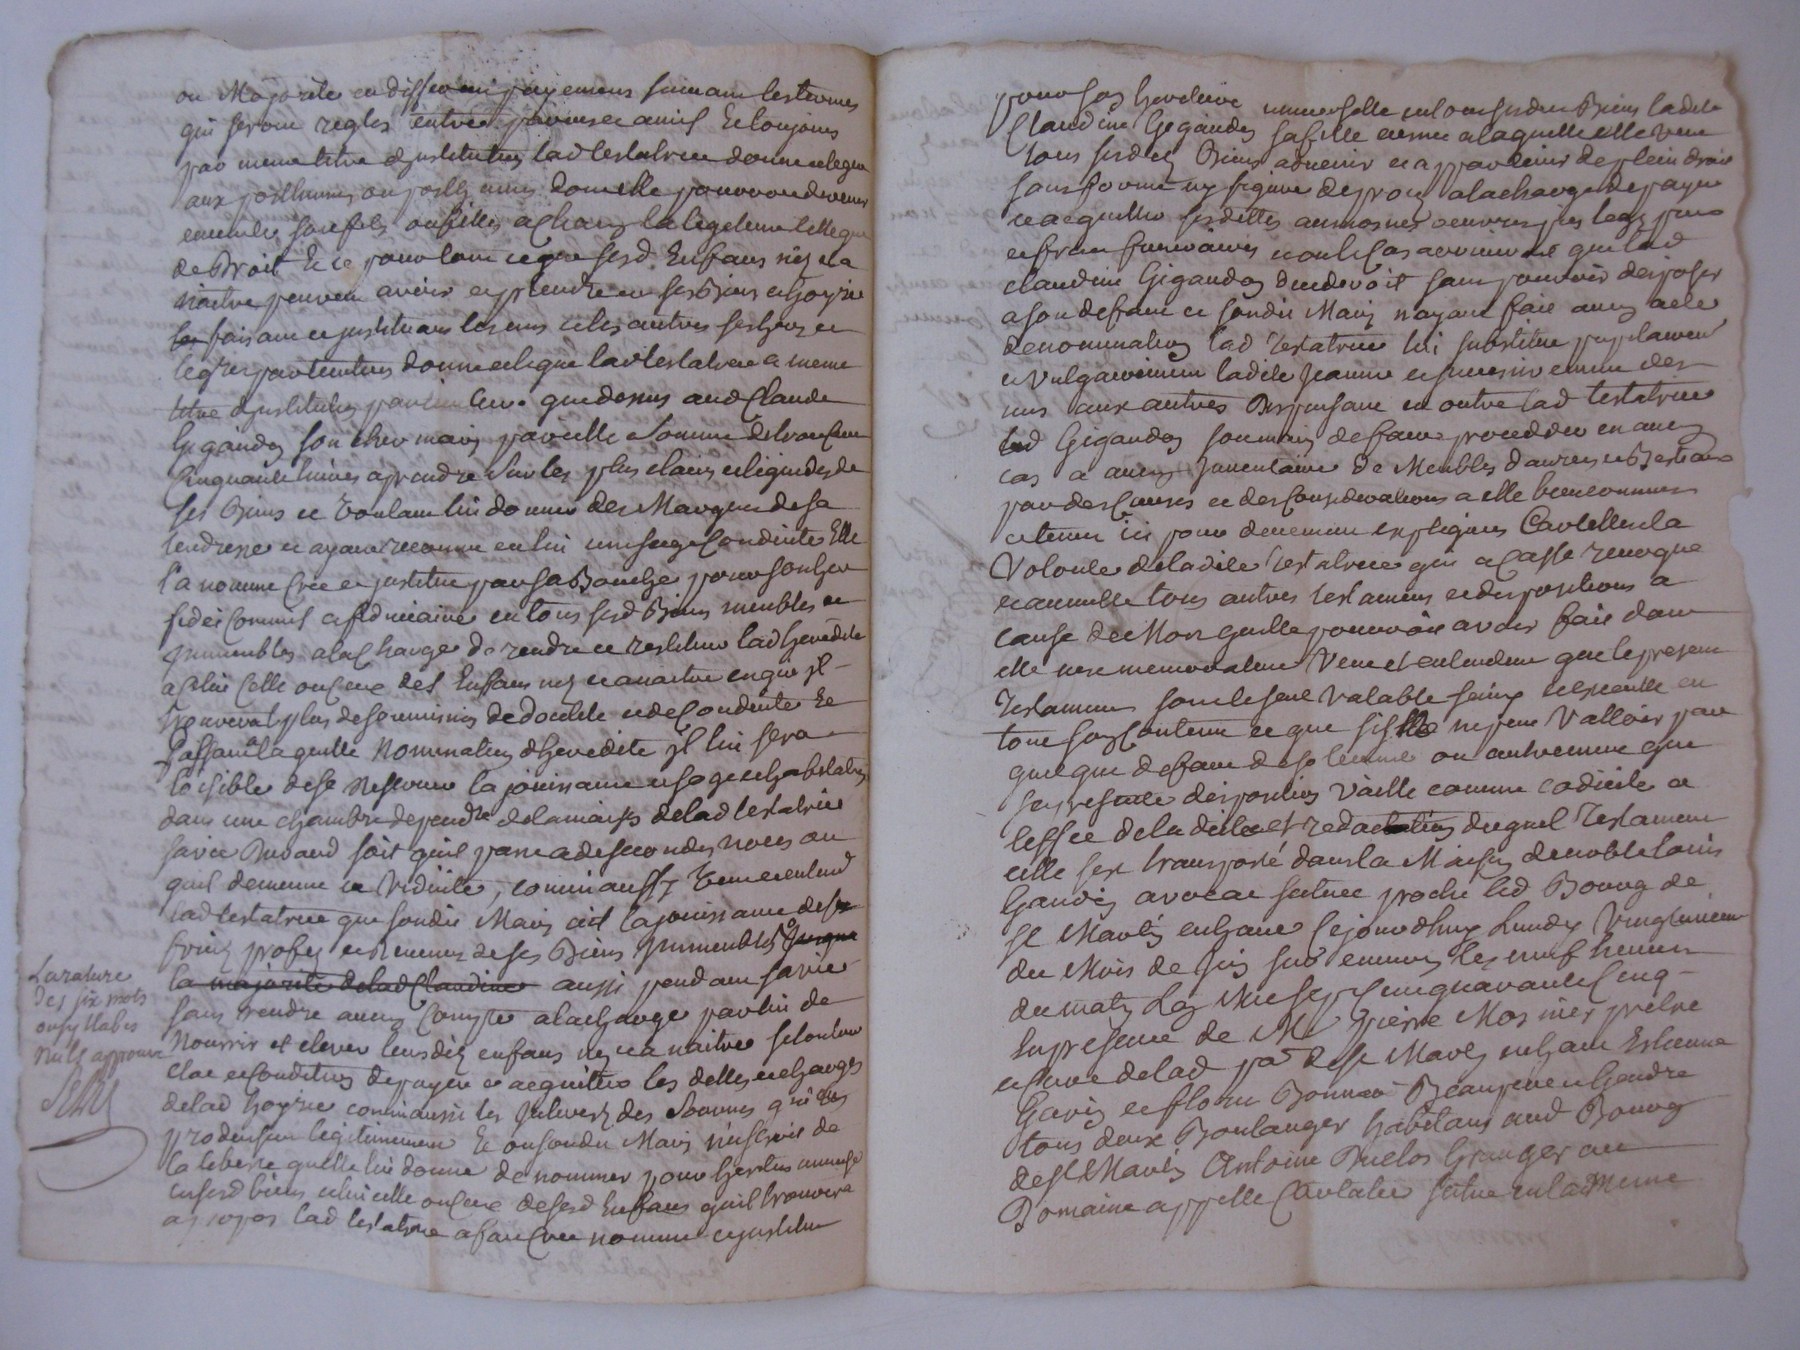 ou Majorité en differens payemens suivant les termes
qui seront reglés entre parens et amis Et toujours
par meme titre d'institution lad testatrice donne et legue
aux posthumes ou posthumes dont elle pourroit devenir
enceinte soit fils ou filles a chacun la legitime telle que
de Droit Et ce pour tout ce que sesd Enfans nés et a
naitre peuvent avoir et prendre en ses Biens et hoyrie
les faisant et instituant les uns et les autres ses hoirs et
donne et legue lad testatrice a meme
titre d'institution que dessus aud Claude
Gigandon son cher mary pareille somme de trois cent
Cinquante livres a prendre sur les plus clairs et liquides de
ses Biens et voulant lui donner des Marques de sa
tendresse et ayant reconnu en lui une sage Conduite Elle
l'a nommé créé et institué par sa Bouche pour son heritier
fidei Commis et fiduciaire en tous sesd Biens meubles et
immeubles a la charge de rendre et restituer lad heredité
a celui celle ou ceux des Enfans nez et a naitre en qui il
trouvera plus de soumission de docilité et de Conduite Et
faisant laquelle Nomination d'heredité il lui sera
loisible de se reserver la jouissance usage et habitation
dans une chambre dependte de la maison de lad testatrice
sa vie Durand soit qu'il passe a des secondes noces ou
qu'il demeure en Viduité, comm'aussy Veut et entend
lad testatrice que sondit Mary ait la jouissance des
fruits profits et revenus de ses Biens immeubles jusqua
la majorité de lad Claudine aussi pendant sa vie
sans rendre aucun Compte a la charge par lui de
Nourrir et elever leursdits enfans nez et a naitre selon leur
etat et Condition de payer et acquitter les dettes et charges
de lad hoyrie comm'aussi les interets des sommes qui en
produisent legitimement Et ou sondit Mary n'useroit de
la liberté qu'elle lui donne de nommer pour heritier universel
en sesd biens celui celle ou ceux de sesd Enfans qu'il trouvera
a propos lad testatrice a fait créé nommé et institué
La rature
des six mots
ou syllabes
nuls approuvé
pour son heritiere universelle en tous sesdits Biens ladite
Claudine Gigandon sa fille ainée a laquelle elle veut
tous sesdits Biens advenir et appartenir de plein droit
sans forme ny figure de procez a la charge de payer
et acquitter ses dettes aumosnes oeuvres pies legs pies
et frais funeraires et ou le cas arriveroit que lad
claudine Gigandon decederoit sans pouvoir disposer
a son defaut et sondit Mary n'ayant fait aucun acte
denomination lad Testatrice lui substitue pupilairement
et Vulgairement ladite Jeanne et successivement des
uns aux autres Dispensant en outre lad testatrice
led Gigandon son mary de faire proceder en aucun
cas a aucun Inventaire de Meubles danrées et Bestiaux
par des Causes et des Considerations a elle bien connues
et tenues ici pour deuement expliquées Car telle est la
Volonté de ladite Testatrice qui a Cassé revoqué
et annullé tous autres testamens et dispositions a
cause de Mort qu'elle pourroit avoir fait dont
elle n'est memorative Veut et entend que le present
Testament soit le seul Valable suivy et executé en
tout son Contenu et que s'il ne peut Valloir par
quelque defaut de solemnité ou autrement que
sa presente disposition Vaille comme codicile et
l'effet de la dictée et redaction duquel Testament
elle s'est transporté dans la Maison de noble Louis
Gaudin avocat située proche led Bourg de
St Martin en haut Cejourdhuy Lundy Vingtunieme
du Mois de Juin sur environ les neuf heures
du matin l'an Mil sept Cent quarante Cinq
En presence de Mr pierre Mosnier prêtre
et Curé de lad passe de St Martin en haut Estienne
Gavin et fleury Bonnar Beaupere et Gendre
tous deux Boulanger habitans aud Bourg
de St Martin Antoine Duclos Granger au
Domaine appellé situé en la Meme